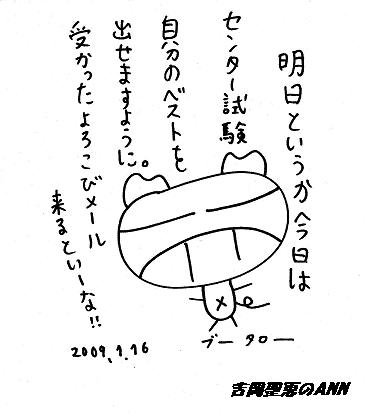 明日というか今日は
センター試験
自分のベストを
出せますように。
受かったよろこびメール
来るといーな!!
ブータロー
2009.1.16
吉岡聖恵のANN